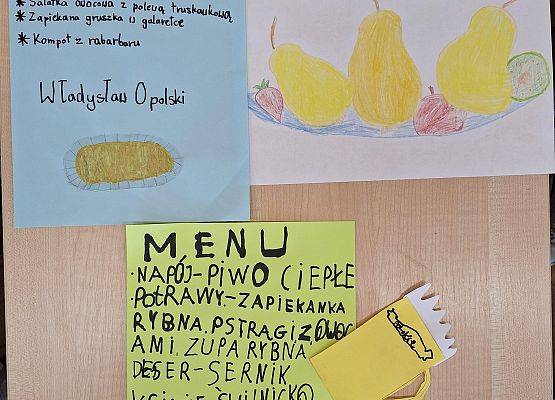 * Sałatka owocowa z polewą truskawkową
* Zapiekana gruszka w galaretce
* Kompot z rabarbaru
Władysław Opolski
MENU
·NAPÓJ-PIWO CIEPŁE
·POTRAWY-ZAPIEKANKA
RYBNA, PSTRĄGI Z OWOC
AMI, ZUPA RYBNA,
DESER-SERNIK